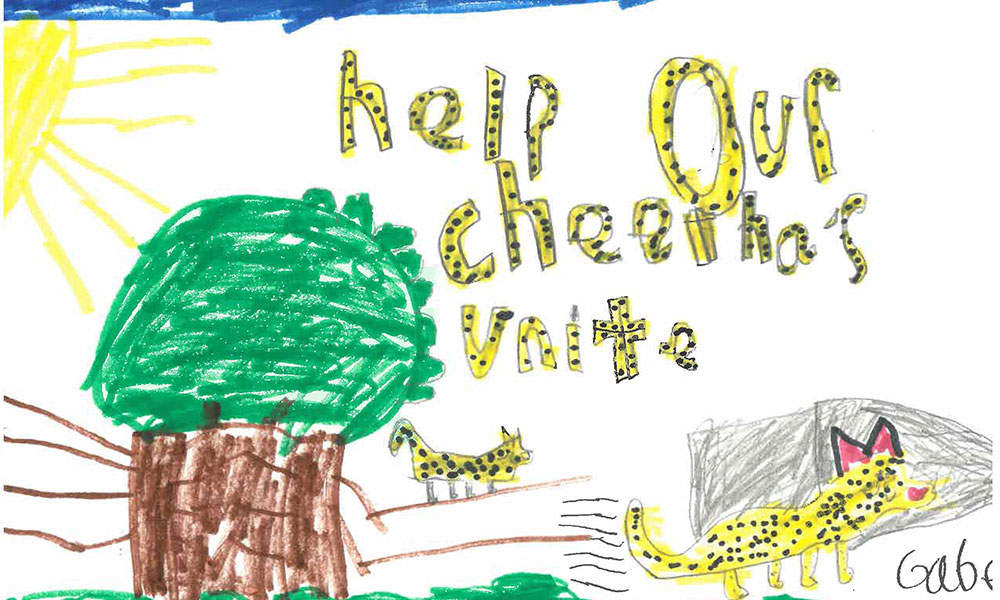 help Our
cheetha's
unite
Gabe